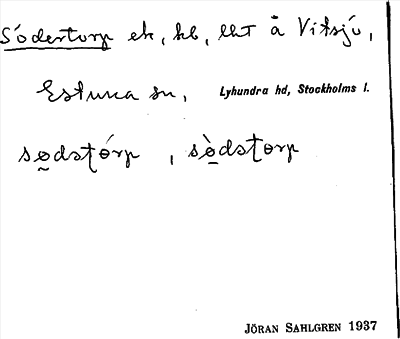 Södertorp ek, kb, lht å Vitsjö,
Estuna sn, Lyhundra hd, Stockholms l.
sødstórp , sødstorp
JÖRAN SAHLGREN 1937